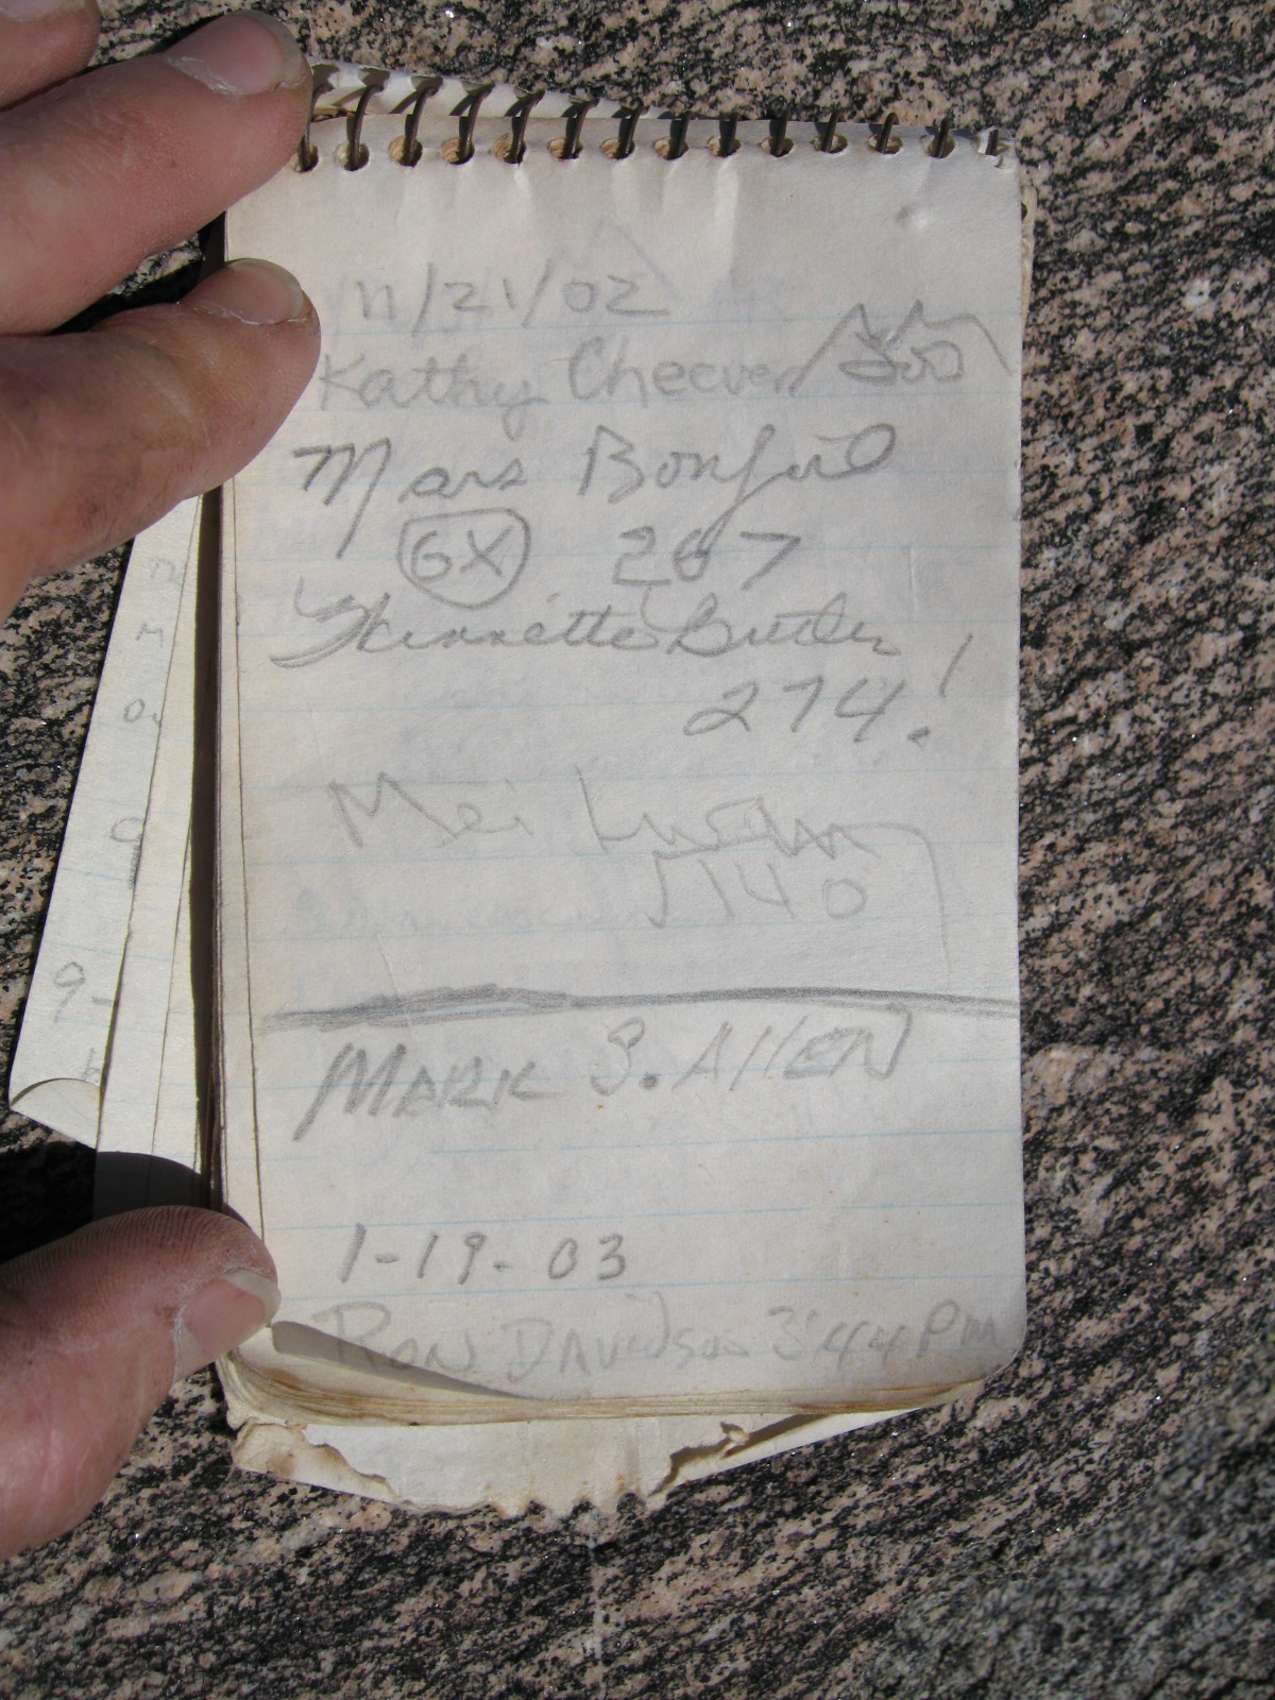 11/21/02
Kathy Cheever
Mars Bonfire
6X 267
Butler
274!
Mei
140
MARK S. AllEN
1-19-03
RON DAvidson 3:44 PM
9-